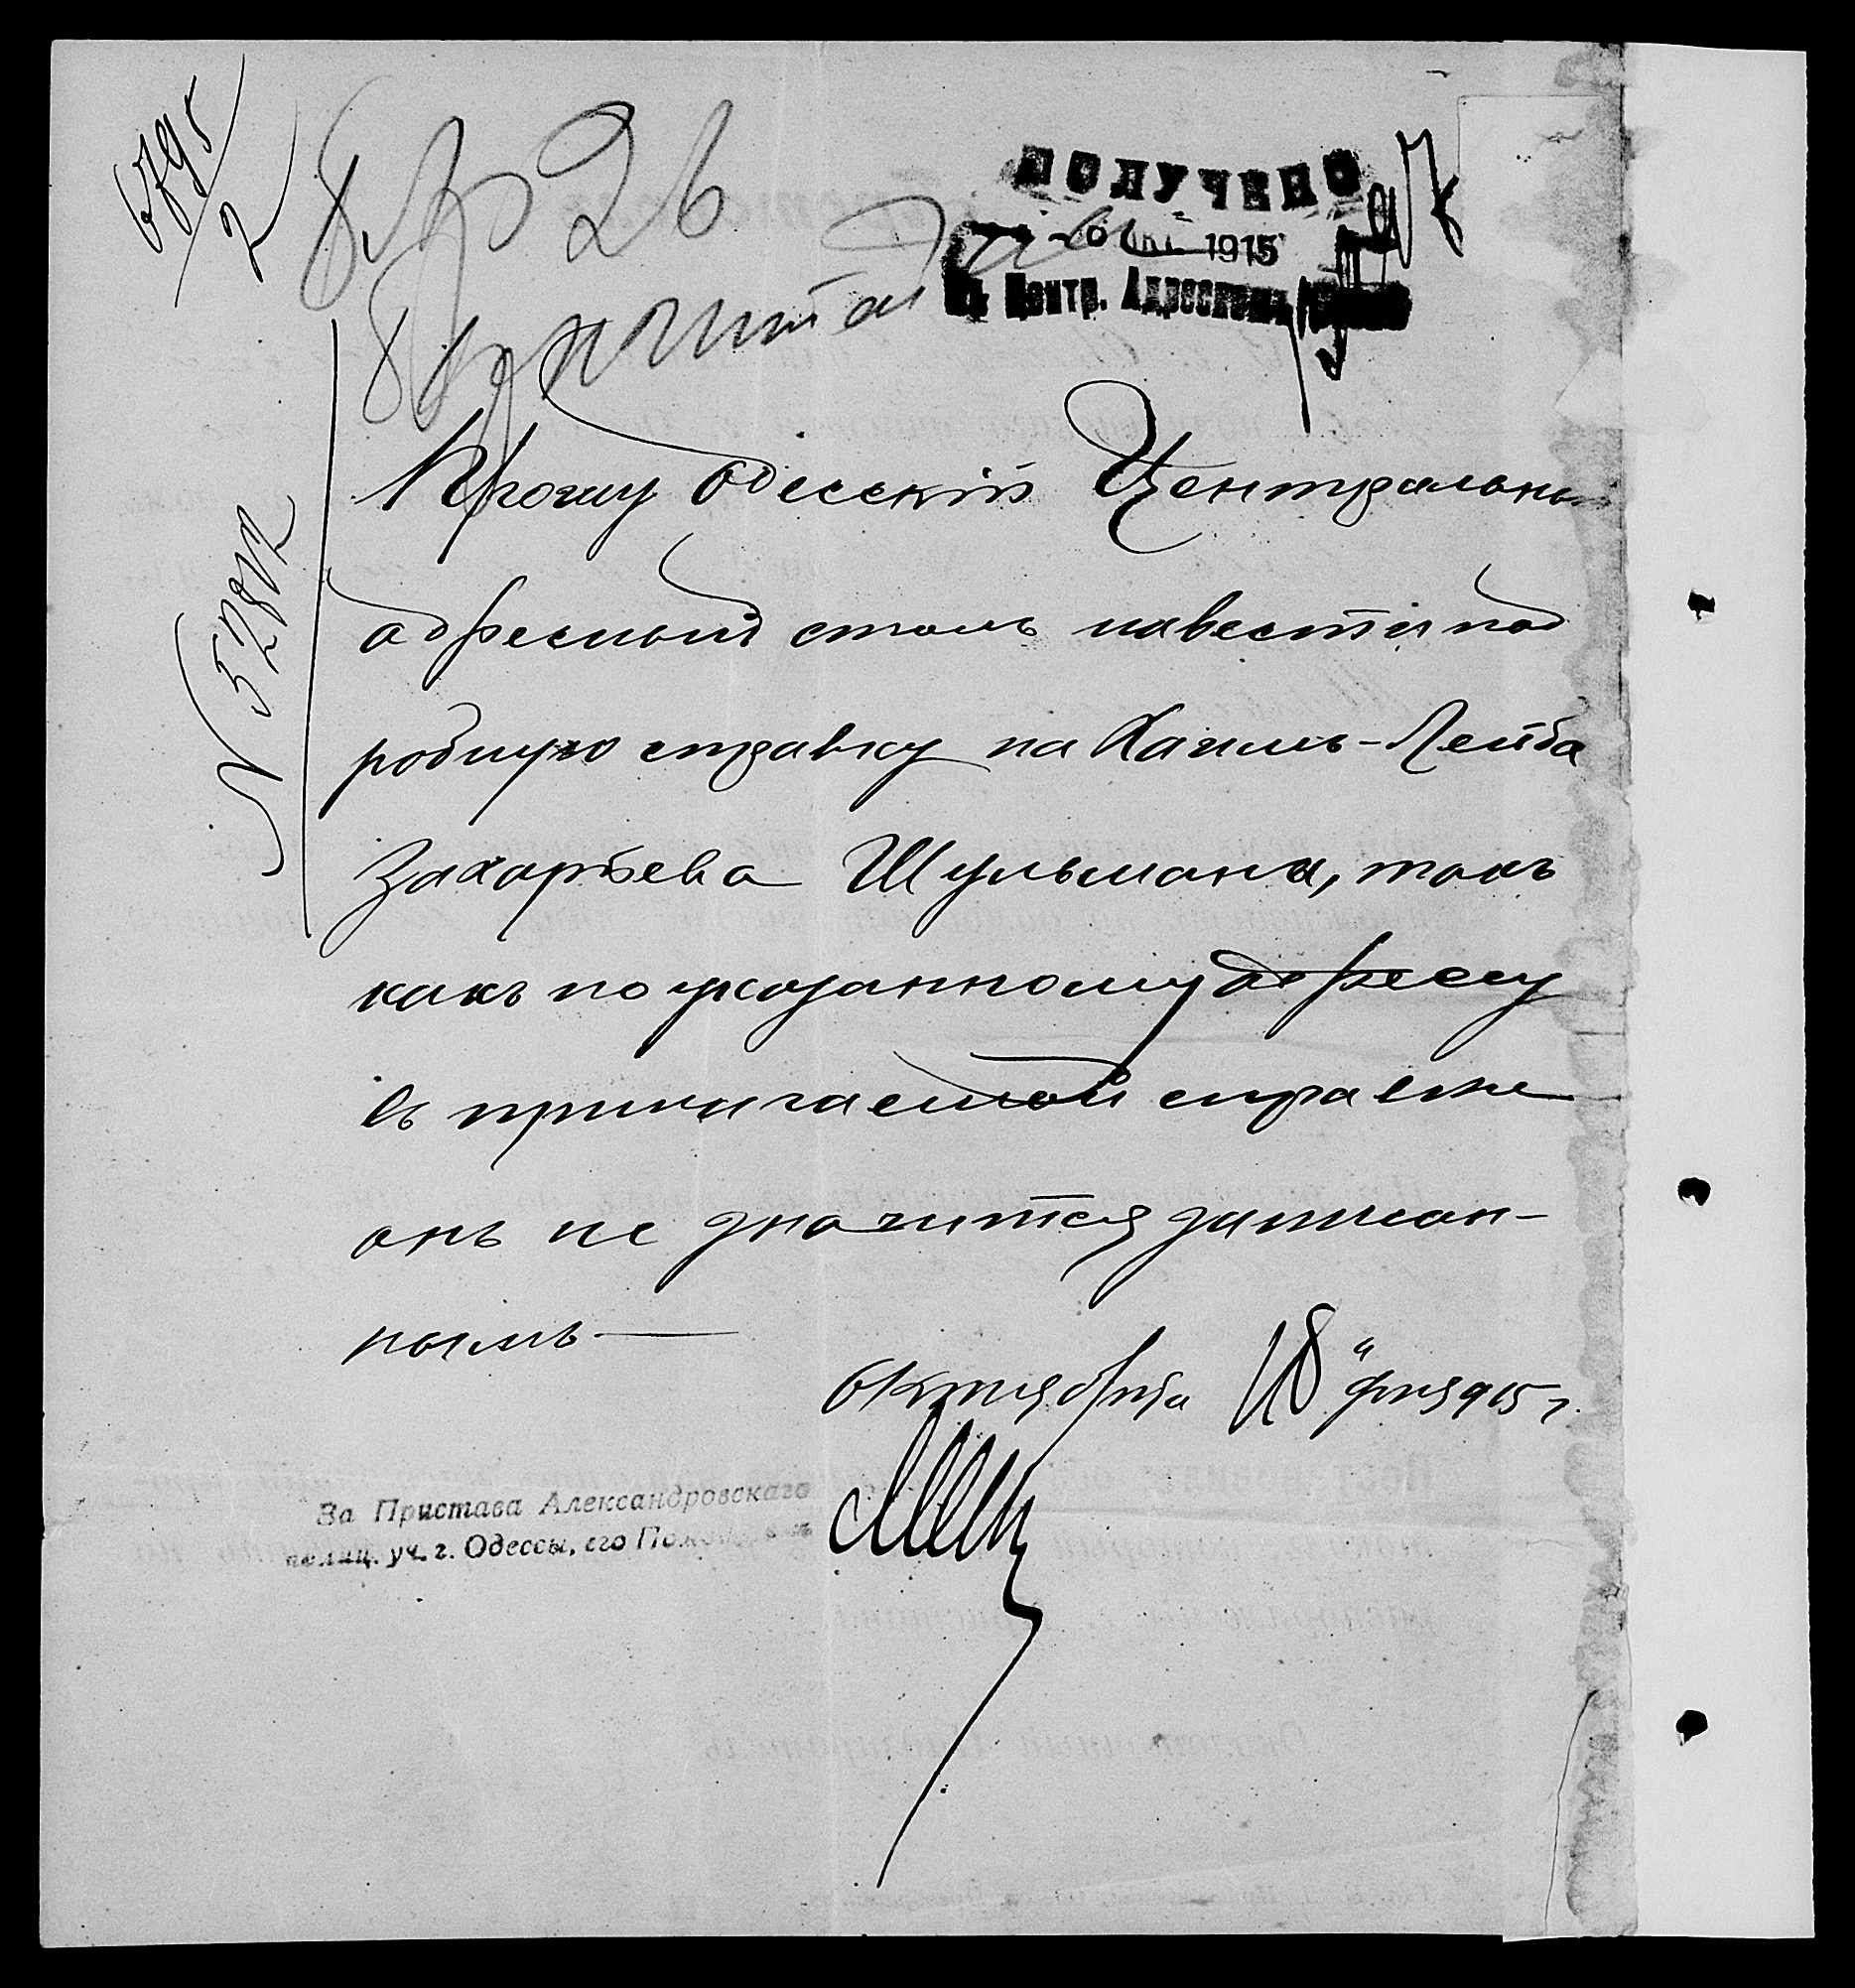 6795
2
8326
ПОЛУЧЕНО
ОКТ. 1915
Въ Центр. Адресномъ
№ 5280
Прошу Одесскій Центральный
адресный столъ навести под
робную справку на Хаимъ-Лейба
Захарьева Шульмана, такъ
какъ по указанному адресу
въ прилагаемой справке
онъ не значится записан-
нымъ —
Октября 18 "дня 915 г.
За Пристава Александровскаго
полиц. уч. г. Одессы, его